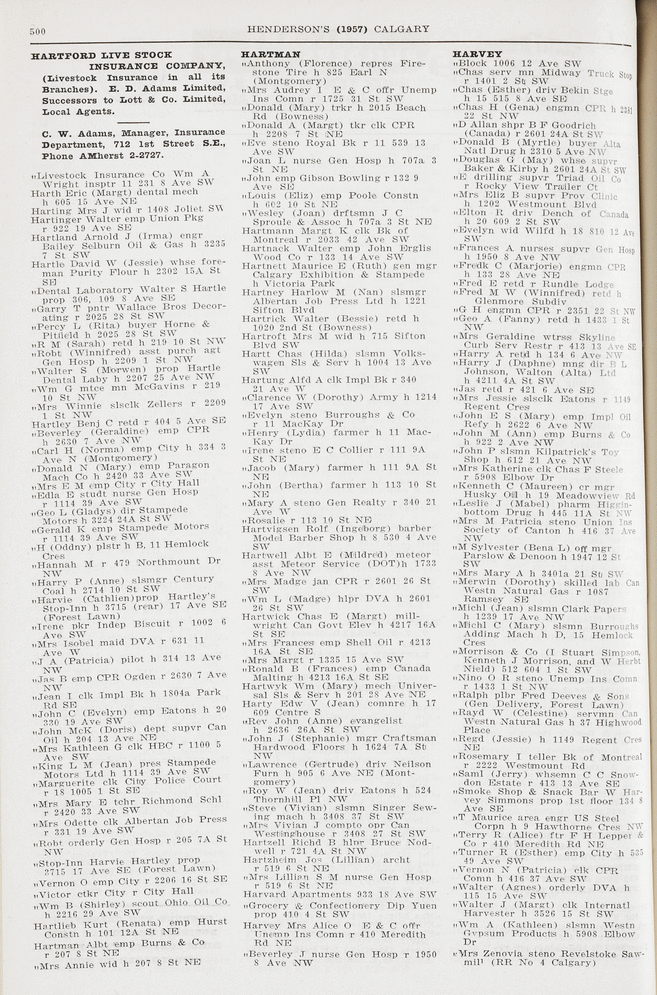 500
HENDERSON'S (1957) CALGARY
HARTFORD LIVE STOCK
INSURANCE COMPANY,
(Livestock Insurance in all its
Branches). E. D. Adams Limited,
Successors to Lott & Co. Limited,
Local Agents.
C. W. Adams, Manager, Insurance
Department, 712 1st Street S.E.,
Phone AMherst 2-2727.
"Livestock Insurance Co Wm A
Wright insptr 11 231 8 Ave SW
Harth Eric (Margt) dental mech
h 605 15 Ave NE
Harting Mrs J wid r 1408 Joliet SW
Hartinger Walter emp Union Pkg
r 922 19 Ave SE
Hartland Arnold J (Irma) engr
Bailey Selburn Oil & Gas h 3235
7 St SW
Hartle David W (Jessie) whse fore-
man Purity Flour h 2302 15A St
SE
"Dental Laboratory Walter S Hartle
prop 306, 109 8 Ave SE
"Garry T pntr Wallace Bros Decor-
ating r 2025 28 St SW
"Percy L (Rita) buyer Horne &
Pitfield h 2025 28 St SW
"R M (Sarah) retd h 219 10 St NW
"Robt (Winnifred) asst purch agt
Gen Hosp h 2209 1 St NW
"Walter S (Morwen) prop Hartle
Dental Laby h 2207 25 Ave NW
"Wm G mtce mn McGavins r 219
10 St NW
"Mrs Winnie slsclk Zellers r 2209
1 St NW
Hartley Benj C retd r 404 5 Ave SE
"Beverley (Geraldine) emp CPR
h 2630 7 Ave NW
"Carl H (Norma) emp City h 334 3
Ave N (Montgomery)
"Donald N (Mary) emp Paragon
Mach Co h 2420 33 Ave SW
"Mrs E M emp City r City Hall
"Edla E studt nurse Gen Hosp
r 1114 39 Ave SW
"Geo L (Gladys) dir Stampede
Motors h 3224 24A St SW
"Gerald K emp Stampede Motors
r 1114 39 Ave SW
"H (Oddny) plstr h B, 11 Hemlock
Cres
"Hannah M r 479 Northmount Dr
NW
"Harry P (Anne) slsmgr Century
Coal h 2714 10 St SW
"Harvie (Cathlien) prop Hartley's
Stop-Inn h 3715 (rear) 17 Ave SE
(Forest Lawn)
"Irene pkr Indep Biscuit r 1002 6
Ave SW
"Mrs Isobel maid DVA r 631 11
Ave W
"J A (Patricia) pilot h 314 13 Ave
NW
"Jas B emp CPR Ogden r 2630 7 Ave
NW
"Jean I clk Impl Bk h 1804a Park
Rd SE
"John C (Evelyn) emp Eatons h 20
330 19 Ave SW
"John McK (Doris) dept supvr Can
Oil h 204 13 Ave NE
"Mrs Kathleen G clk HBC r 1100 5
Ave SW
"King L M (Jean) pres Stampede
Motors Ltd h 1114 39 Ave SW
"Marguerite clk City Police Court
r 18 1005 1 St SE
"Mrs Mary E tchr Richmond Schl
r 2420 33 Ave SW
"Mrs Odette clk Albertan Job Press
r 331 19 Ave SW
"Robt orderly Gen Hosp r 205 7A St
NW
"Stop-Inn Harvie Hartley prop
3715 17 Ave SE (Forest Lawn)
"Vernon O emp City r 2206 16 St SE
"Victor ctkr City r City Hall
"Wm B (Shirley) scout Ohio Oil Co
h 2216 29 Ave SW
Hartlieb Kurt (Renata) emp Hurst
Constn h 101 12A St NE
Hartman Albt emp Burns & Co
r 207 8 St NE
"Mrs Annie wid h 207 8 St NE
HARTMAN
"Anthony (Florence) repres Fire-
stone Tire h 825 Earl N
(Montgomery)
"Mrs Audrey I E & C offr Unemp
Ins Comn r 1725 31 St SW
"Donald (Mary) trkr h 2015 Beach
Rd (Bowness)
"Donald A (Margt) tkr clk CPR
h 2208 7 St NE
"Eve steno Royal Bk r 11 539 13
Ave SW
"Joan L nurse Gen Hosp h 707a 3
St NE
"John emp Gibson Bowling r 132 9
Ave SE
"Louis (Eliz) emp Poole Constn
h 602 10 St NE
"Wesley (Joan) drftsmn J C
Sproule & Assoc h 707a 3 St NE
Hartmann Margt K clk Bk of
Montreal r 2033 42 Ave SW
Hartnack Walter emp John Erglis
Wood Co r 133 14 Ave SW
Hartnett Maurice E (Ruth) gen mgr
Calgary Exhibition & Stampede
h Victoria Park
Hartney Harlow M (Nan) slsmgr
Albertan Job Press Ltd h 1221
Sifton Blvd
Hartrick Walter (Bessie) retd h
1020 2nd St (Bowness)
Hartroft Mrs M wid h 715 Sifton
Blvd SW
Hartt Chas (Hilda) slsmn Volks-
wagen Sls & Serv h 1004 13 Ave
SW
Hartung Alfd A clk Impl Bk r 340
21 Ave W
"Clarence W (Dorothy) Army h 1214
17 Ave SW
"Evelyn steno Burroughs & Co
r 11 MacKay Dr
"Henry (Lydia) farmer h 11 Mac-
Kay Dr
"Irene steno E C Collier r 111 9A
St NE
"Jacob (Mary) farmer h 111 9A St
NE
"John (Bertha) farmer h 113 10 St
NE
"Mary A steno Gen Realty r 340 21
Ave W
"Rosalie r 113 10 St NE
Hartvigsen Rolf (Ingeborg) barber
Model Barber Shop h 8 530 4 Ave
SW
Hartwell Albt E (Mildred) meteor
asst Meteor Service (DOT)h 1733
8 Ave NW
"Mrs Madge jan CPR r 2601 26 St
SW
"Wm L (Madge) hlpr DVA h 2601
26 St SW
Hartwick Chas E (Margt) mill-
wright Can Govt Elev h 4217 16A
St SE
"Mrs Frances emp Shell Oil r 4213
16A St SE
"Mrs Margt r 1335 15 Ave SW
"Ronald B (Frances) emp Canada
Malting h 4213 16A St SE
Hartwyk Wm (Mary) mech Univer-
sal Sls & Serv h 201 28 Ave NE
Harty Edw V (Jean) comnre h 17
609 Centre S
"Rev John (Anne) evangelist
h 2636 26A St SW
"John J (Stephanie) mgr Craftsman
Hardwood Floors h 1624 7A St
NW
"Lawrence (Gertrude) driv Neilson
Furn h 905 6 Ave NE (Mont-
gomery)
"Roy W (Jean) driv Eatons h 524
Thornhill Pl NW
"Steve (Vivian) slsmn Singer Sew-
ing mach h 3408 37 St SW
"Mrs Vivian J compto opr Can
Westinghouse r 3408 27 St SW
Hartzell Richd B hlpr Bruce Nod-
well r 721 4A St NW
Hartzheim Jos (Lillian) archt
r 519 6 St NE
"Mrs Lillian S M nurse Gen Hosp
r 519 6 St NE
Harvard Apartments 933 18 Ave SW
"Grocery & Confectionery Dip Yuen
prop 410 4 St SW
Harvey Mrs Alice O E & C offr
Unemp Ins Comn r 410 Meredith
Rd NE
"Beverley J nurse Gen Hosp r 1950
8 Ave NW
HARVEY
"Block 1006 12 Ave SW
"Chas serv mn Midway Truck Stop
r 1401 2 St SW
"Chas (Esther) driv Bekin Stge
h 15 515 8 Ave SE
"Chas H (Gena) engmn CPR h 2381
22 St NW
"D Allan shpr B F Goodrich
(Canada) r 2601 24A St SW
"Donald B (Myrtle) buyer Alta
Natl Drug h 2310 5 Ave NW
"Douglas G (May) whse supvr
Baker & Kirby h 2601 24A St SW
"E drilling supvr Triad Oil Co
r Rocky View Trailer Ct
"Mrs Eliz B supvr Prov Clinic
h 1202 Westmount Blvd
"Elton R driv Dench of Canada
h 20 609 2 St SW
"Evelyn wid Wilfd h 18 810 12 Ave
SW
"Frances A nurses supvr Gen Hosp
h 1950 8 Ave NW
"Fredk C (Marjorie) engmn CPR
h 133 28 Ave NE
"Fred E retd r Rundle Lodge
"Fred M W (Winnifred) retd h
Glenmore Subdiv
"G H engmn CPR r 2351 22 St NW
"Geo A (Fanny) retd h 1433 1 St
NW
"Mrs Geraldine wtrss Skyline
Curb Serv Restr r 413 13 Ave SE
"Harry A retd h 134 6 Ave NW
"Harry J (Daphne) mng dir B L
Johnson, Walton (Alta) Ltd
h 4211 4A St SW
"Jas retd r 421 6 Ave SE
"Mrs Jessie slsclk Eatons r 1149
Regent Cres
"John E S (Mary) emp Impl Oil
Refy h 2622 6 Ave NW
"John M (Ann) emp Burns & Co
h 922 2 Ave NW
"John P slsmn Kilpatrick's Toy
Shop h 612 21 Ave NW
"Mrs Katherine clk Chas F Steele
r 5908 Elbow Dr
"Kenneth C (Maureen) cr mgr
Husky Oil h 19 Meadowview Rd
"Leslie J (Mabel) pharm Higgin-
bottom Drug h 445 11A St NW
"Mrs M Patricia steno Union Ins
Society of Canton h 416 37 Ave
NW
"M Sylvester (Bena L) off mgr
Parslow & Denoon h 1947 12 St
SW
"Mrs Mary A h 3401a 21 St SW
"Merwin (Dorothy) skilled lab Can
Westn Natural Gas r 1087
Ramsey SE
"Michl (Jean) slsmn Clark Papers
h 1239 17 Ave NW
"Michl C (Mary) slsmn Burroughs
Adding Mach h D, 15 Hemlock
Cres
"Morrison & Co (I Stuart Simpson,
Kenneth J Morrison, and W Herbt
Nield) 512 604 1 St SW
"Nino O R steno Unemp Ins Comn
r 1433 1 St NW
"Ralph pibr Pfred Deeves & Sons
(Gen Delivery, Forest Lawn)
"Rayd W (Celestine) servmn Can
Westn Natural Gas h 37 Highwood
Place
"Regd (Jessie) h 1149 Regent Cres
NE
"Rosemary I teller Bk of Montreal
r 2222 Westmount Rd
"Saml (Jerry) whsemn C C Snow-
don Estate r 413 13 Ave SE
"Smoke Shop & Snack Bar W Har-
vey Simmons prop 1st floor 134 8
Ave SE
"T Maurice area engr US Steel
Corpn h 9 Hawthorne Cres NW
"Terry R (Alice) ftr F H Lepper &
Co r 410 Meredith Rd NE
"Turner R (Esther) emp City h 535
49 Ave SW
"Vernon N (Patricia) clk CPR
Comn h 416 37 Ave NW
"Walter (Agnes) orderly DVA h
115 15 Ave SW
"Walter J (Margt) clk Internatl
Harvester h 3526 15 St SW
"Wm A (Kathleen) slsmn Westn
Gypsum Products h 5908 Elbow
Dr
"Mrs Zenovia steno Revelstoke Saw-
mill (RR No 4 Calgary)